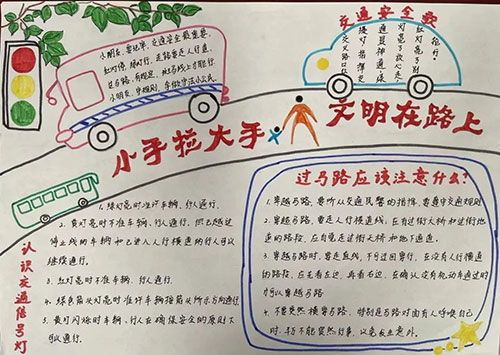 小朋友，要记牢，交通安全最重要，
红灯停，绿灯行，走路要走人行道，
过马路，有规定，斑马线上才能行，
小朋友，守规则，争做守法小公民。
交通安全歌
小手拉大手
文明在路上
认识交通信号灯
1. 绿灯亮时准许车辆、行人通行。
2. 黄灯亮时不准车辆、行人通行，但已越过
停止线的车辆和已进入人行横道的行人可以
继续通行。
3. 红灯亮时不准车辆、行人通行。
4. 绿色箭头灯亮时准许车辆按箭头所示方向通行
5. 黄灯闪烁时车辆、行人在确保安全的原则下
可以通行。
过马路应该注意什么？
1. 穿越马路，要听从交通民警的指挥，要遵守交通规则
2. 穿越马路，要走人行横道线，在有过街天桥和过街地
道的路段，应自觉走过街天桥和地下通道。
3. 穿越马路时，要走直线，不可迂回穿行，在没有人行横道
的路段，应先看左边，再看右边，在确认没有机动车通过时
可以穿越马路
4. 不要突然横穿马路，特别是马路对面有人呼唤自己
时，千万不能突然行事，以免发生意外。